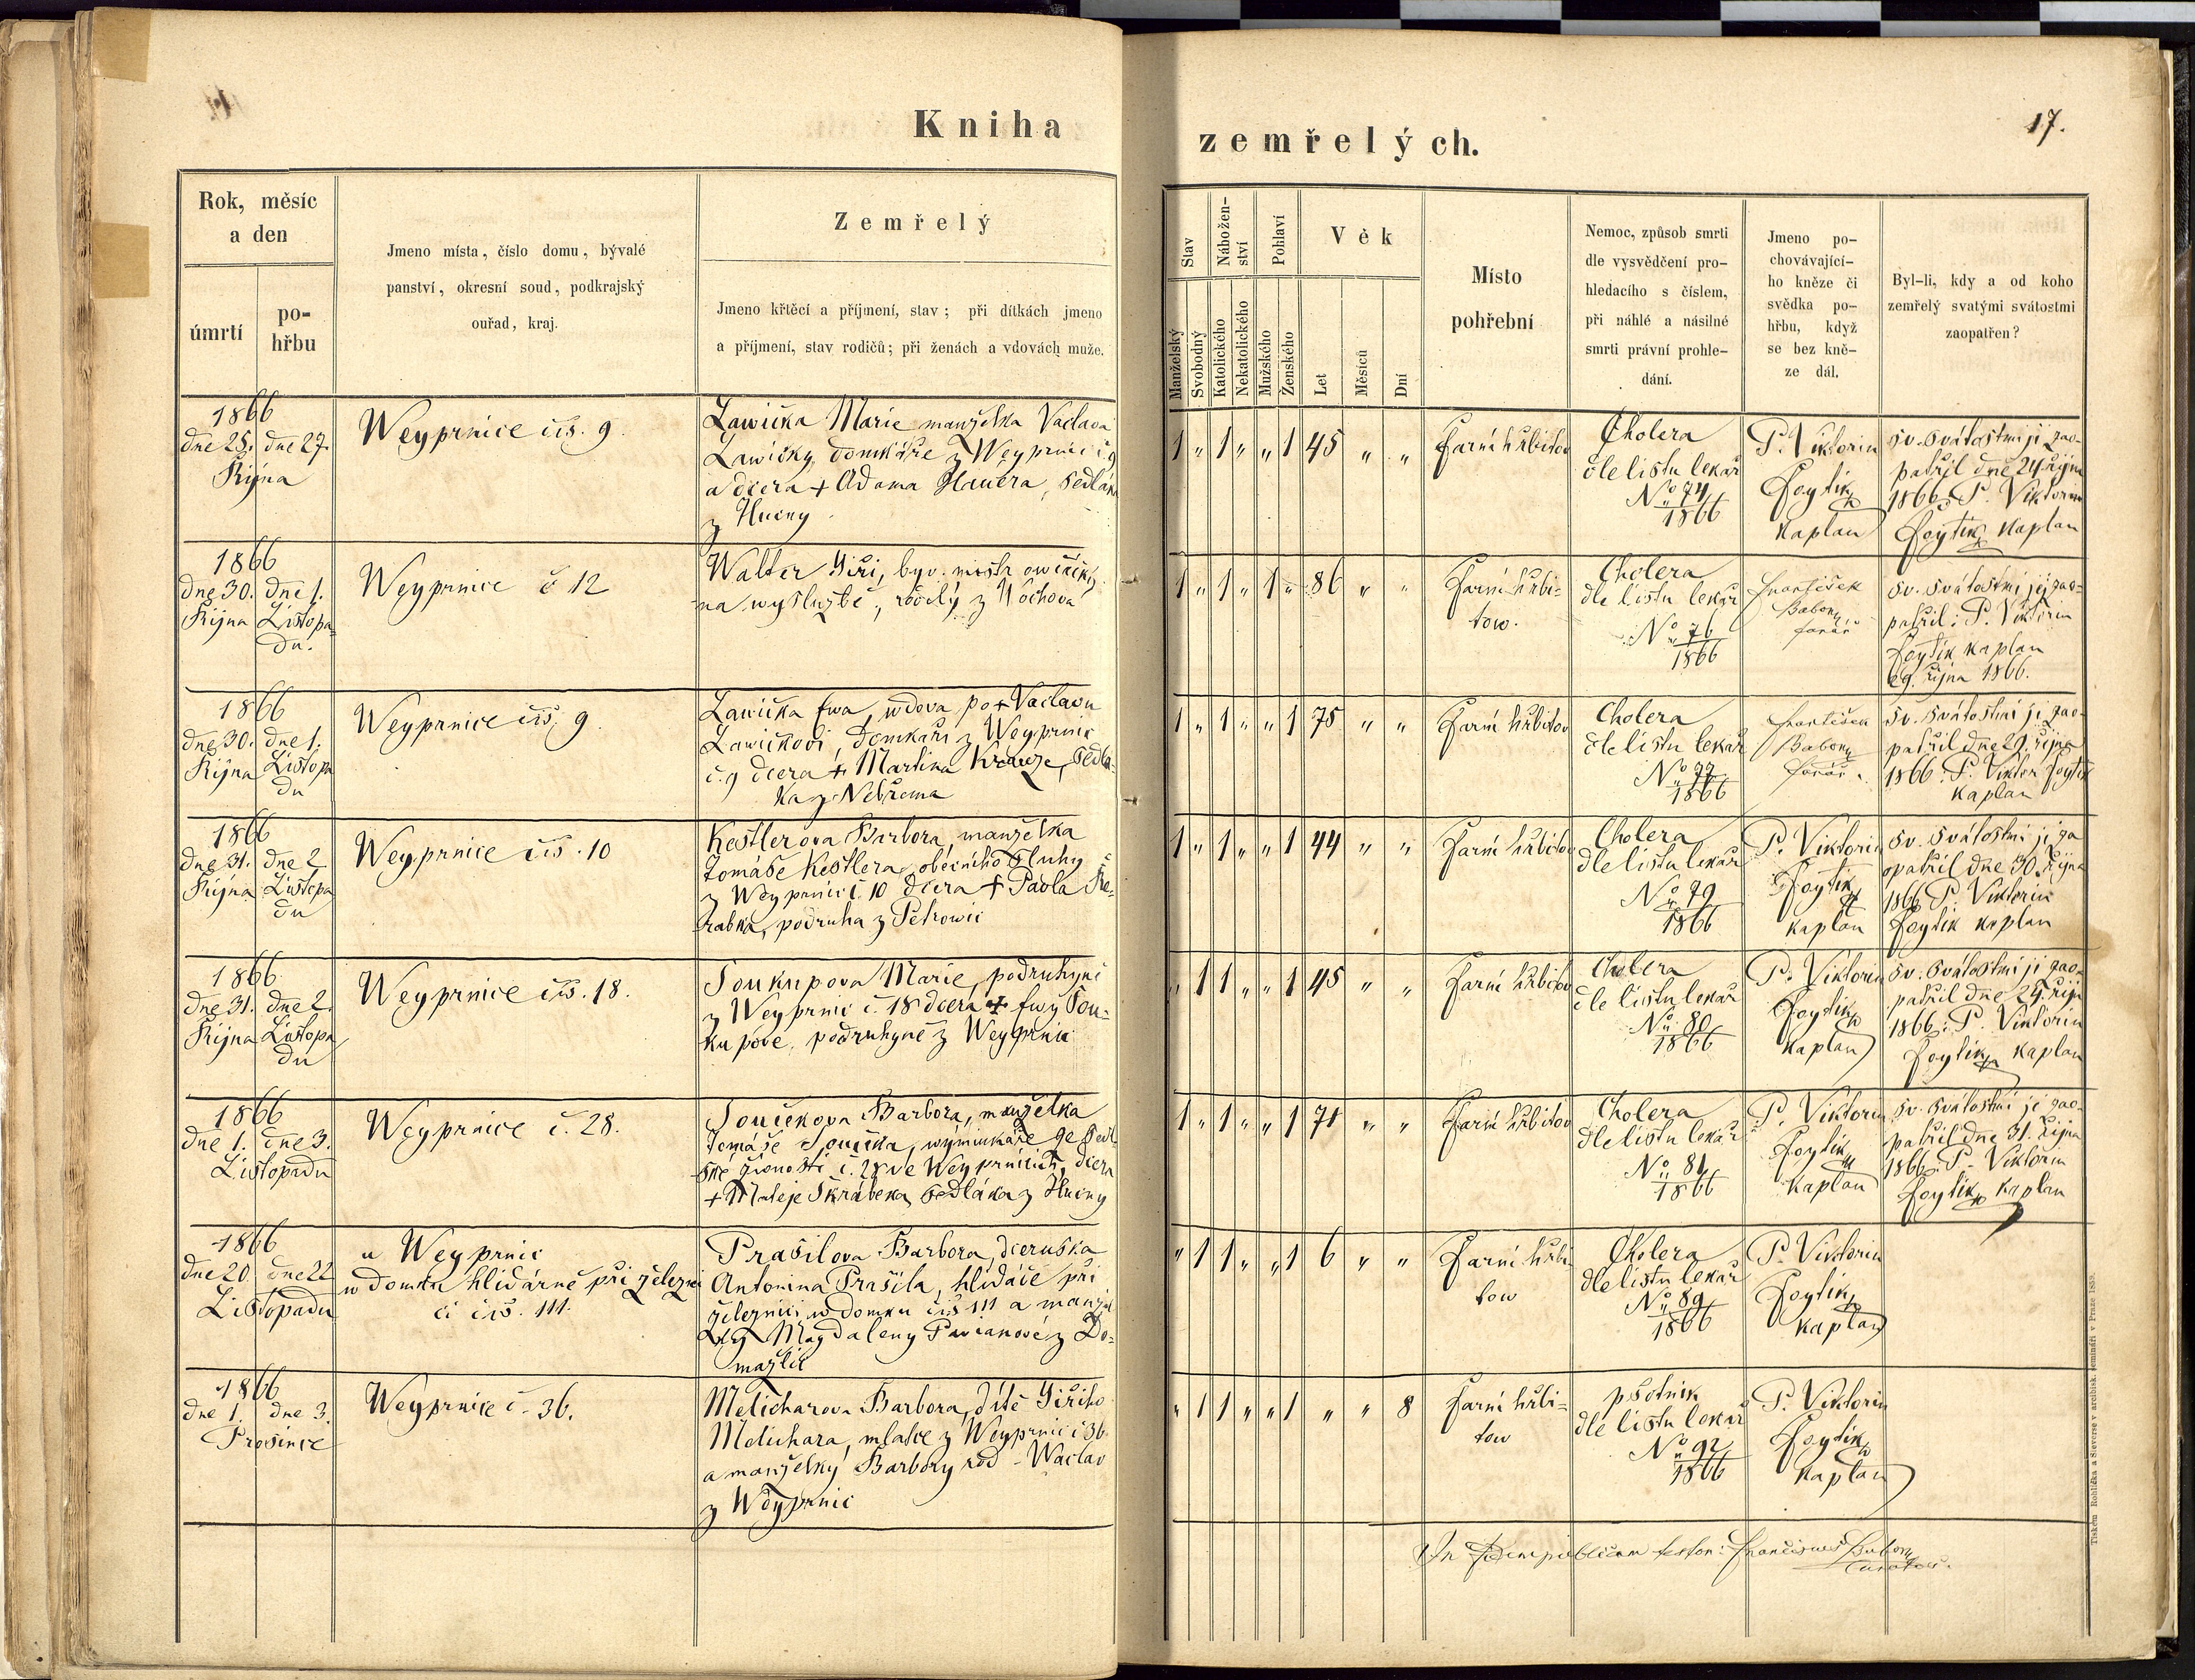 Kniha
zemřelých.
17.
Rok, měsíc
a den
úmrtí
po-
hřbu
Jmeno místa, číslo domu, bývalé
panství, okresní soud, podkrajský
ouřad, kraj.
Zemřelý
Jmeno křtěcí a příjmení, stav; při dítkách jmeno
a příjmení, stav rodičů; při ženách a vdovách muže.
Stav
Manželský
Svobodný
Nábožen-
ství
Katolického
Nekatolického
Pohlaví
Mužského
Ženského
Věk
Let
Měsíců
Dní
Místo
pohřební
Nemoc, způsob smrti
dle vysvědčení pro-
hledacího s číslem,
při náhlé a násilné
smrti právní prohle-
dání.
Jmeno po-
chovávající-
ho kněze či
svědka po-
hřbu, když
se bez kně-
ze dál.
Byl-li, kdy a od koho
zemřelý svatými svátostmi
zaopatřen?
1866
dne 25. dne 27.
Října
Weyprnice čís. 9.
Lawička Marie manželka Vaclava
Lawičky, domkáře z Weyprnic č. 9
a dcera + Adama Hauera, sedláka
z Hueny
1 „ 1 „ „ 1 45 „ „
Farní hřbitov
Cholera
dle listu lekař
No 74
1866
P. Viktorin
Foytik
kaplan
sv. svátostmi ji zao-
patřil dne 24. října
1866. P. Viktorin
Foytik kaplan
1866
dne 30. dne 1.
Října Listopa-
du.
Weyprnice č 12
Walter Jiři, byv. mistr owčácký
na wyslužbě, rodilý z Wochova
1 „ 1 „ 1 „ 86 „ „
Farní hřbi-
tow.
Cholera
dle listu lekař
No 76
1866
František
Babony
farář
sv. svátostmi jej zao-
patřil: P. Viktorin
Foytik kaplan
29. října 1866.
1866
dne 30. dne 1.
Října Listopa
du
Weyprnice čís. 9.
Lawička Ewa, wdova po + Vaclavu
Lawičkovi, domkáři z Weyprnic
č. 9 dcera + Martina Krauze, sedlá-
ka z Nebřema
1 „ 1 „ „ 1 75 „ „
Farní hřbitov
Cholera
dle listu lekař
No 77
1866
František
Babony
farář.
sv. svátostmi ji zao-
patřil dne 29. října
1866: P. Viktor Foytik
kaplan
1866
dne 31. dne 2
Října Listopa
du
Weyprnice čís. 10
Kestlerova Barbora, manželka
Tomáše Kestlera, obecního sluhy
z Weyprnic č. 10 dcera + Pavla Řе-
řabka, podruha z Petrowic
1 „ 1 „ „ 1 44 „ „
Farní hřbitov
Cholera
dle listu lekař
No 79
1866
P. Viktorin
Foytik
kaplan
sv. svátostmi ji za
opatřil dne 30. října
1866 P. Viktorin
Foytik kaplan
1866
dne 31. dne 2.
Října Listopa
du
Weyprnice čís. 18.
Soukupova Marie, podruhyně
z Weyprnic č. 18 dcera + Ewy Sou-
kupove, podruhyně z Weyprnic
„ 1 1 „ „ 1 45 „ „
Farní hřbitov
Cholera
dle listu lekař
No 80
1866
P. Viktorin
Foytik
kaplan
sv. svátostmi ji zao-
patřil dne 29. říj
1866: P. Viktorin
Foytik kaplan
1866
dne 1. dne 3.
Listopadu
Weyprnice č. 28.
Součkova Barbora, manželka
Tomáše Součka, wýminkáře ze sedl
ské živnosti č. 28 ve Weyprnicích, dcera
+ Matěje Škrábeka, sedláka z Hueny
1 „ 1 „ „ 1 71 „ „
Farní hřbitov
Cholera
dle listu lekař
No 81
1866
P. Viktorin
Foytik
kaplan
sv. svátostmi ji zao-
patřil dne 31. října
1866: P. Viktorin
Foytik kaplan
1866
dne 20. dne 22
Listopadu
u Weyprnic
w domku hlídárně při železni
ci čís. 111.
Prašilova Barbora, dceruška
Antonina Prašila, hlídače při
železnici w domku čís 111 a manžel
ky Magdaleny Pavianové z Do-
mažlic
„ 1 1 „ „ 1 6 „ „
Farní hřbi
tow
Cholera
dle listu lekař
No 89
1866
P. Viktorin
Foytik
kaplan
1866
dne 1. dne 3.
Prosince
Weyprnice č. 36.
Melicharova Barbora, dítě Jiřiho
Melichara, mlatce z Weyprnic č 36
a manželky Barbory rod. Waclav
z Weyprnic
„ 1 1 „ „ 1 „ „ 8
Farní hřbi-
tow
psotnik
dle listu lekař
No 92
1866
P. Viktorin
Foytik
kaplan
In fidem publicam testor: Franciscus Babony
Curatus.
Tiskem Rohlíčka a Sieverse v arcibisk. semináři v Praze 1859.